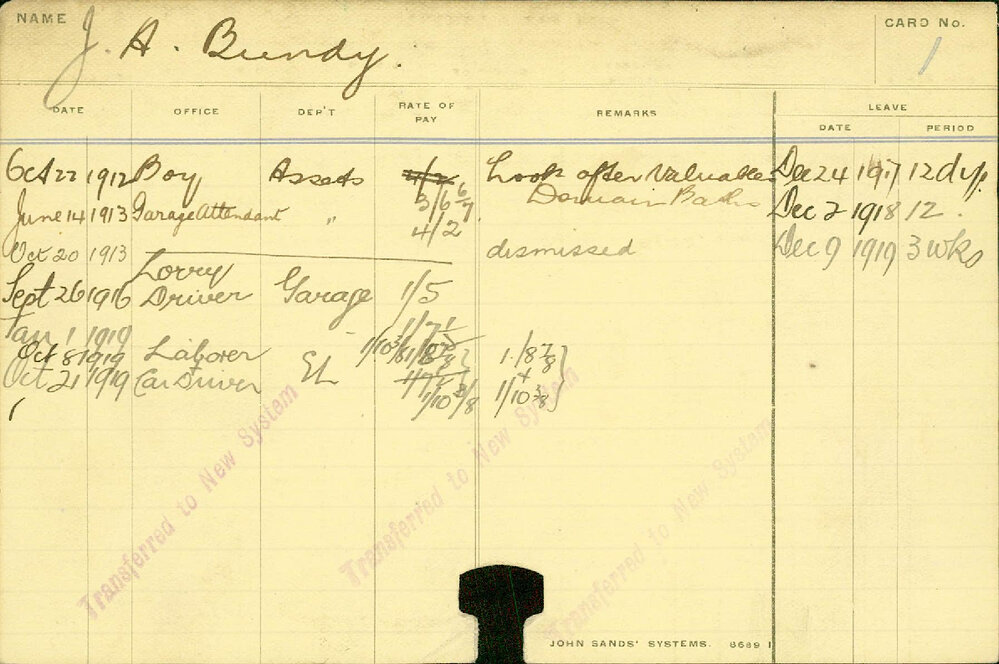 NAME
J. A. Bundy.
CARD No.
1
DATE OFFICE DEP'T RATE OF PAY REMARKS LEAVE
DATE PERIOD
Oct 22 1912 Boy Assets Look after Valuables Dec 24 1917 12 dys.
June 14 1913 Garage Attendant " 3/6 Domain Baths Dec 2 1918 12.
4/2
Oct 20 1913 dismissed Dec 9 1919 3 wks
Sept 26 1916 Lorry Driver Garage 1/5
Jan 1 1919 1/7½
Oct 8 1919 Laborer 1/8⅞
Oct 21 1919 Car Driver EL 1/10⅜ 1/10⅜
Transferred to New System
Transferred to New System
Transferred to New System
JOHN SANDS' SYSTEMS. 8689